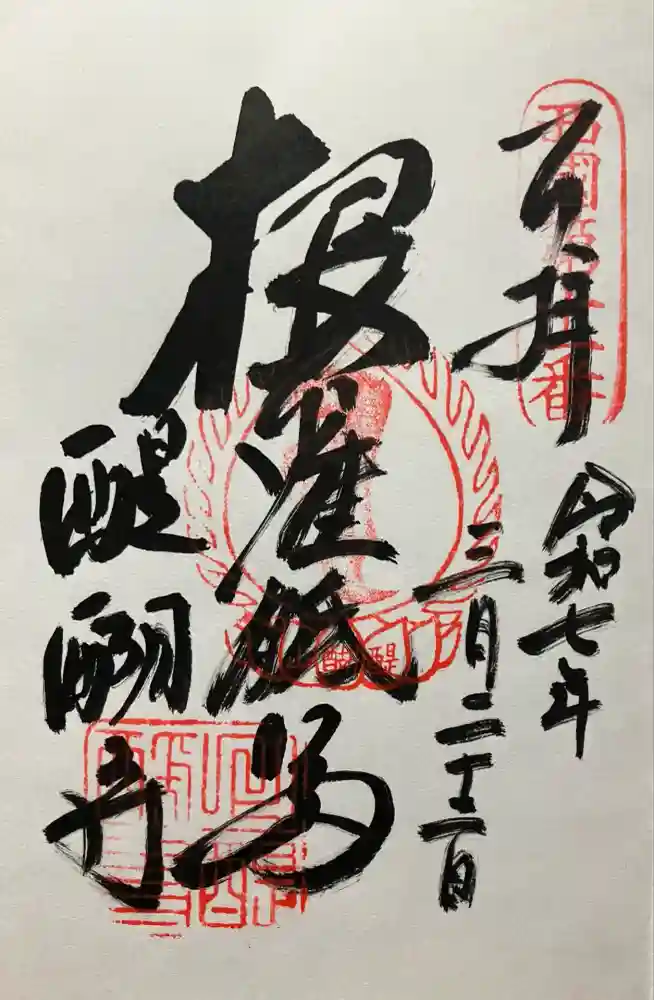 奉拝
西国第十一番
令和七年
三月二十二日
根准胝
醍醐山
醍醐寺